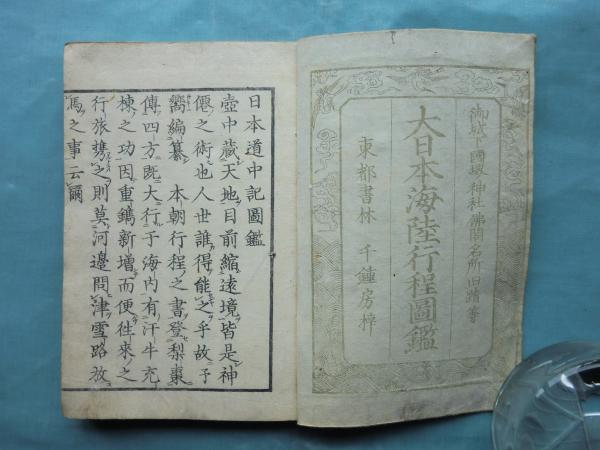 御城下國境神社佛閣名所旧蹟等
大日本海陸行程圖鑑
東都書林 千鍾房梓
日本道中記圖鑑
壺中藏天地目前縮遠境皆是神
僊之術也人世誰得能之乎故予
嚮編纂 本朝行程之書登梨棗
傳四方既大行于海内有汗牛充
棟之功因重鐫新增而便徃來之
行旅携之則莫河邊問津雪路放
馬之事云爾